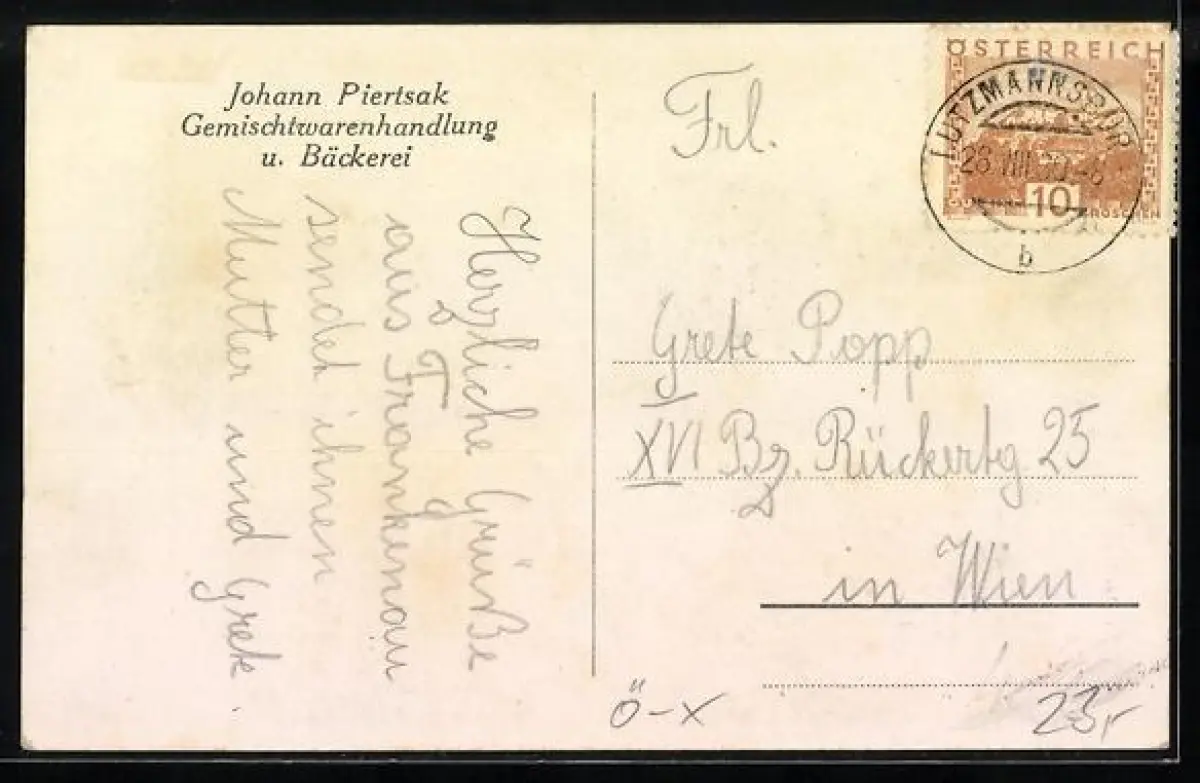 Johann Piertsak
Gemischtwarenhandlung
u. Bäckerei
Herzliche Grüße
aus Frankenau
sendet ihnen
Mutter und Grete.
ÖSTERREICH
LUTZMANNSBUR
28.VIII.30.-6
10
GROSCHEN
b
Frl.
Grete Popp
XVI Bz. Rückertg 25
in Wien
Ö-X
23,-